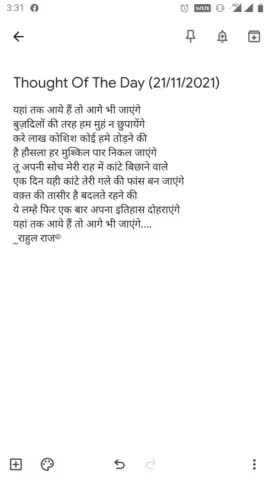 3:31
Thought Of The Day (21/11/2021)
यहां तक आये हैं तो आगे भी जाएंगे
बुज़दिलों की तरह हम मुहं न छुपायेंगे
करे लाख कोशिश कोई हमे तोड़ने की
है हौसला हर मुश्किल पार निकल जाएंगे
तू अपनी सोच मेरी राह में कांटे बिछाने वाले
एक दिन यही कांटे तेरी गले की फांस बन जाएंगे
वक़्त की तासीर है बदलते रहने की
ये लम्हे फिर एक बार अपना इतिहास दोहराएंगे
यहां तक आये हैं तो आगे भी जाएंगे....
_राहुल राज